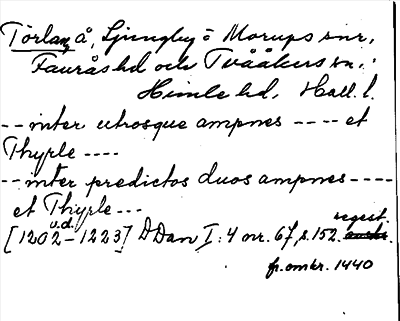 Törlan, å, Ljungby o Morups snr,
Fauråshd och Tvååkers sn,
Himle hd, Hall. l.
-- inter utrosque ampnes ---- et
Thyrle ----
-- inter predictos duos ampnes ----
et Thyrle ---
u.d. regest.
[1202-1223] DDan I:4 nr. 67, s. 152.
fr. omkr. 1440